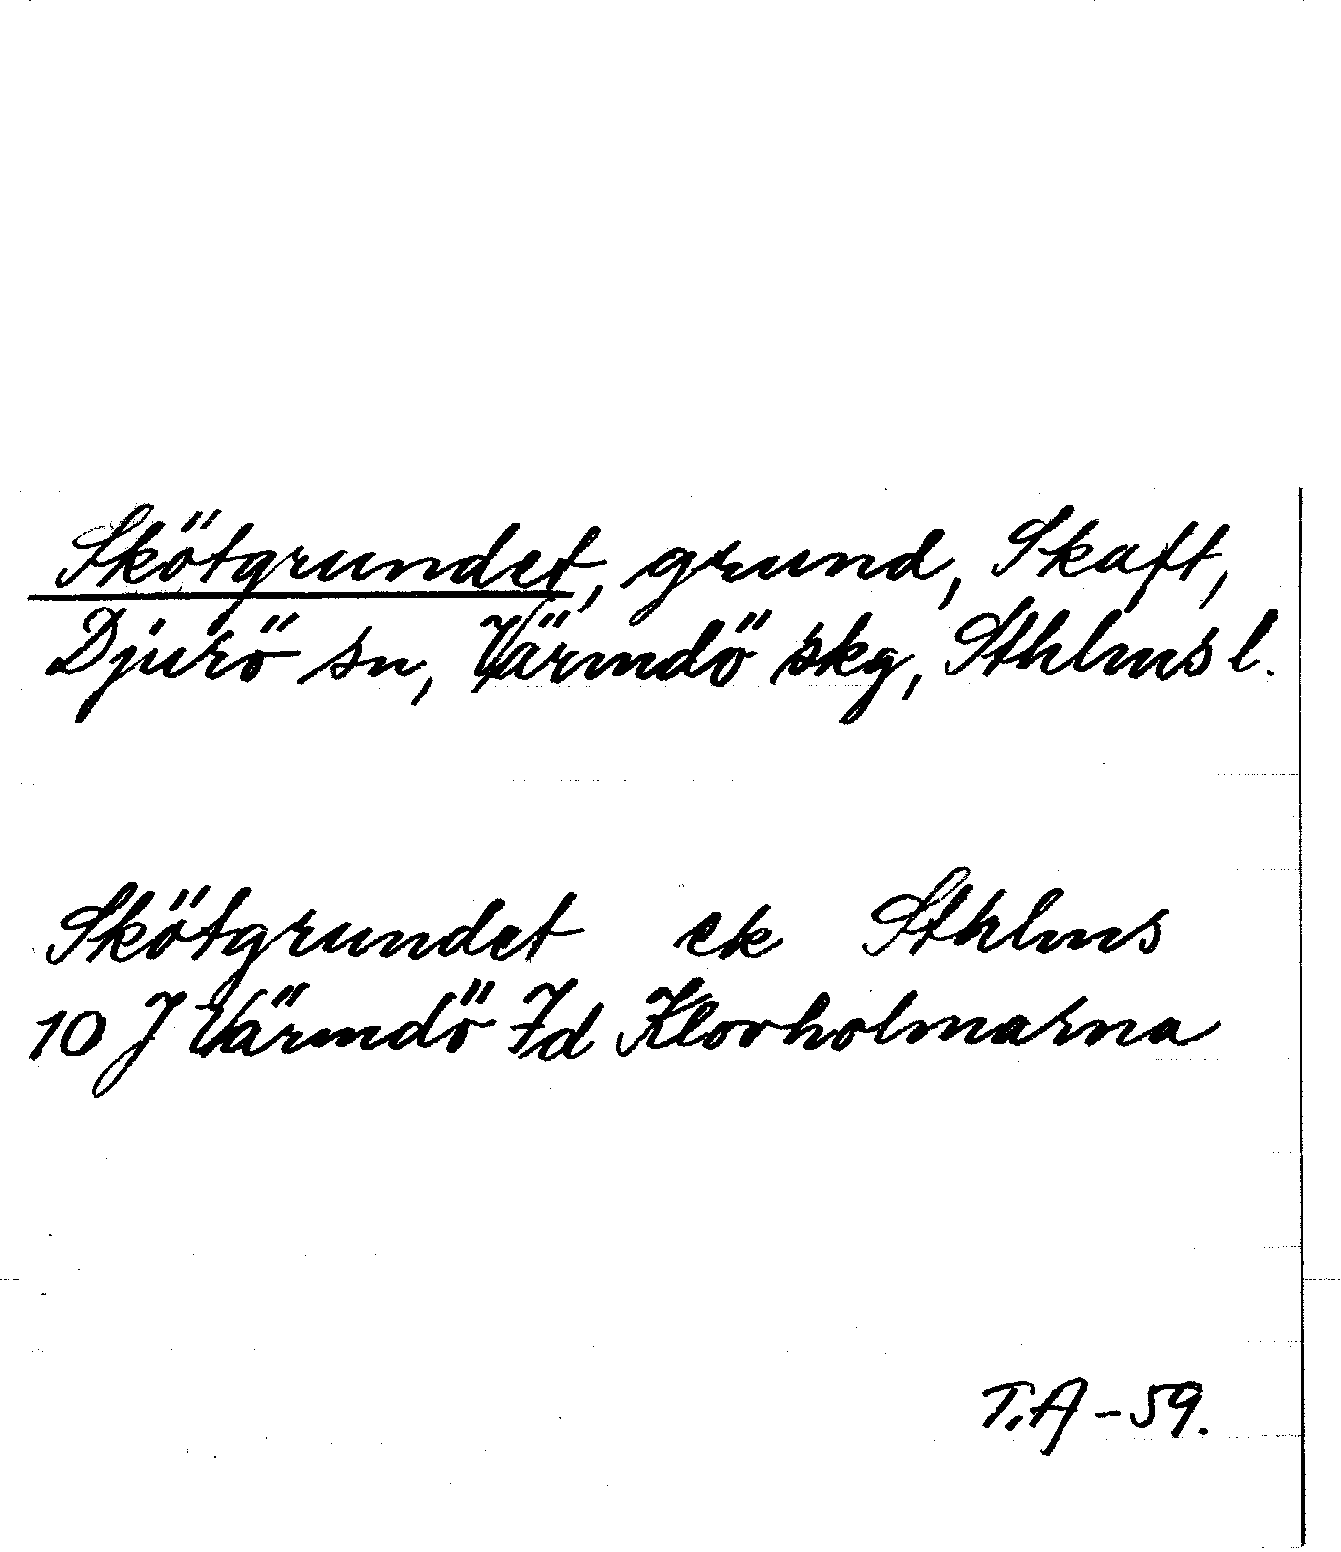 Skötgrundet, grund, Skaft,
Djurö sn, Värmdö skg, Sthlms l.
Skötgrundet ek Sthlms
10 J Värmdö 7d Klovholmarna
T.A - 59.